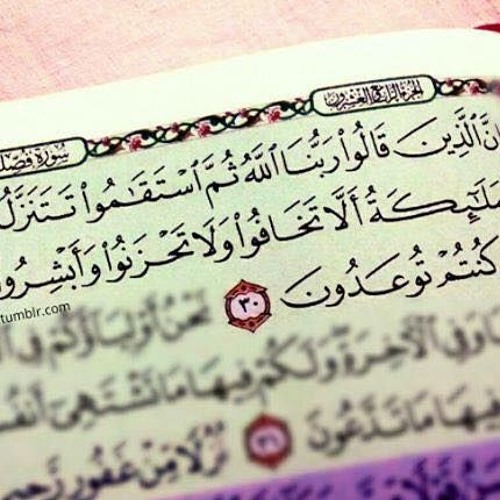 الجزء الرابع والعشرون سورة فصل
نَّ ٱلَّذِينَ قَالُوا۟ رَبُّنَا ٱللَّهُ ثُمَّ ٱسْتَقَٰمُوا۟ تَتَنَزَّلُ
لَٰٓئِكَةُ أَلَّا تَخَافُوا۟ وَلَا تَحْزَنُوا۟ وَأَبْشِرُو
كُنتُمْ تُوعَدُونَ ٣٠ نَحْنُ أَوْلِيَآؤُكُمْ فِى
tumblr.com
وَفِى ٱلْأَخِرَةِ وَلَكُمْ فِيهَا مَا تَشْتَهِىٓ أَنفُسُ
فِيهَا مَا تَدَّعُونَ ٣١ نُزُلًا مِّنْ غَفُورٍ رَّحِيمٍ